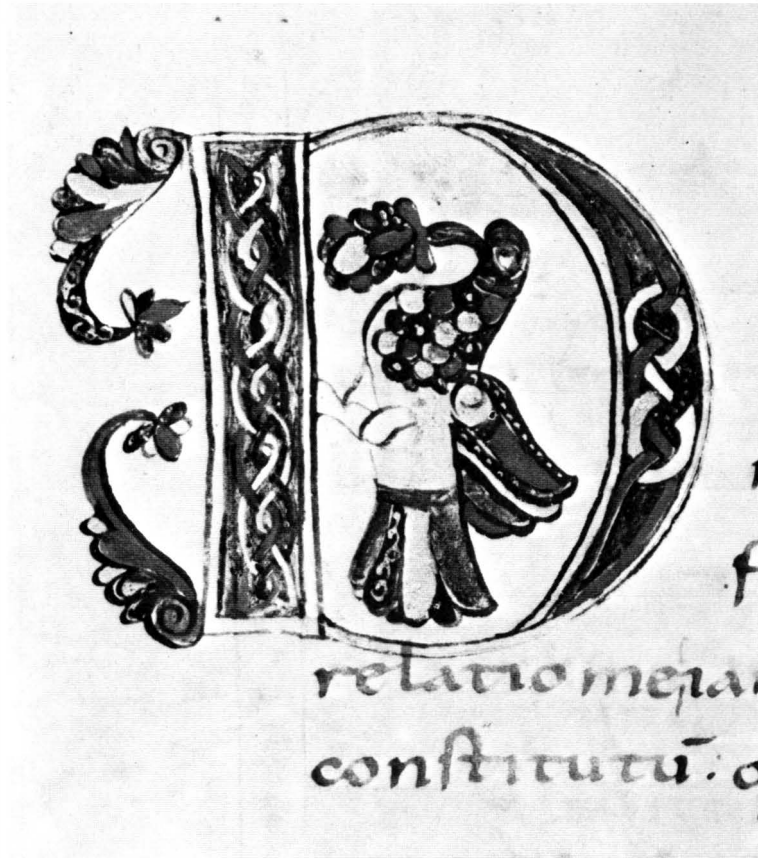 D
relatio meia
constitutū: